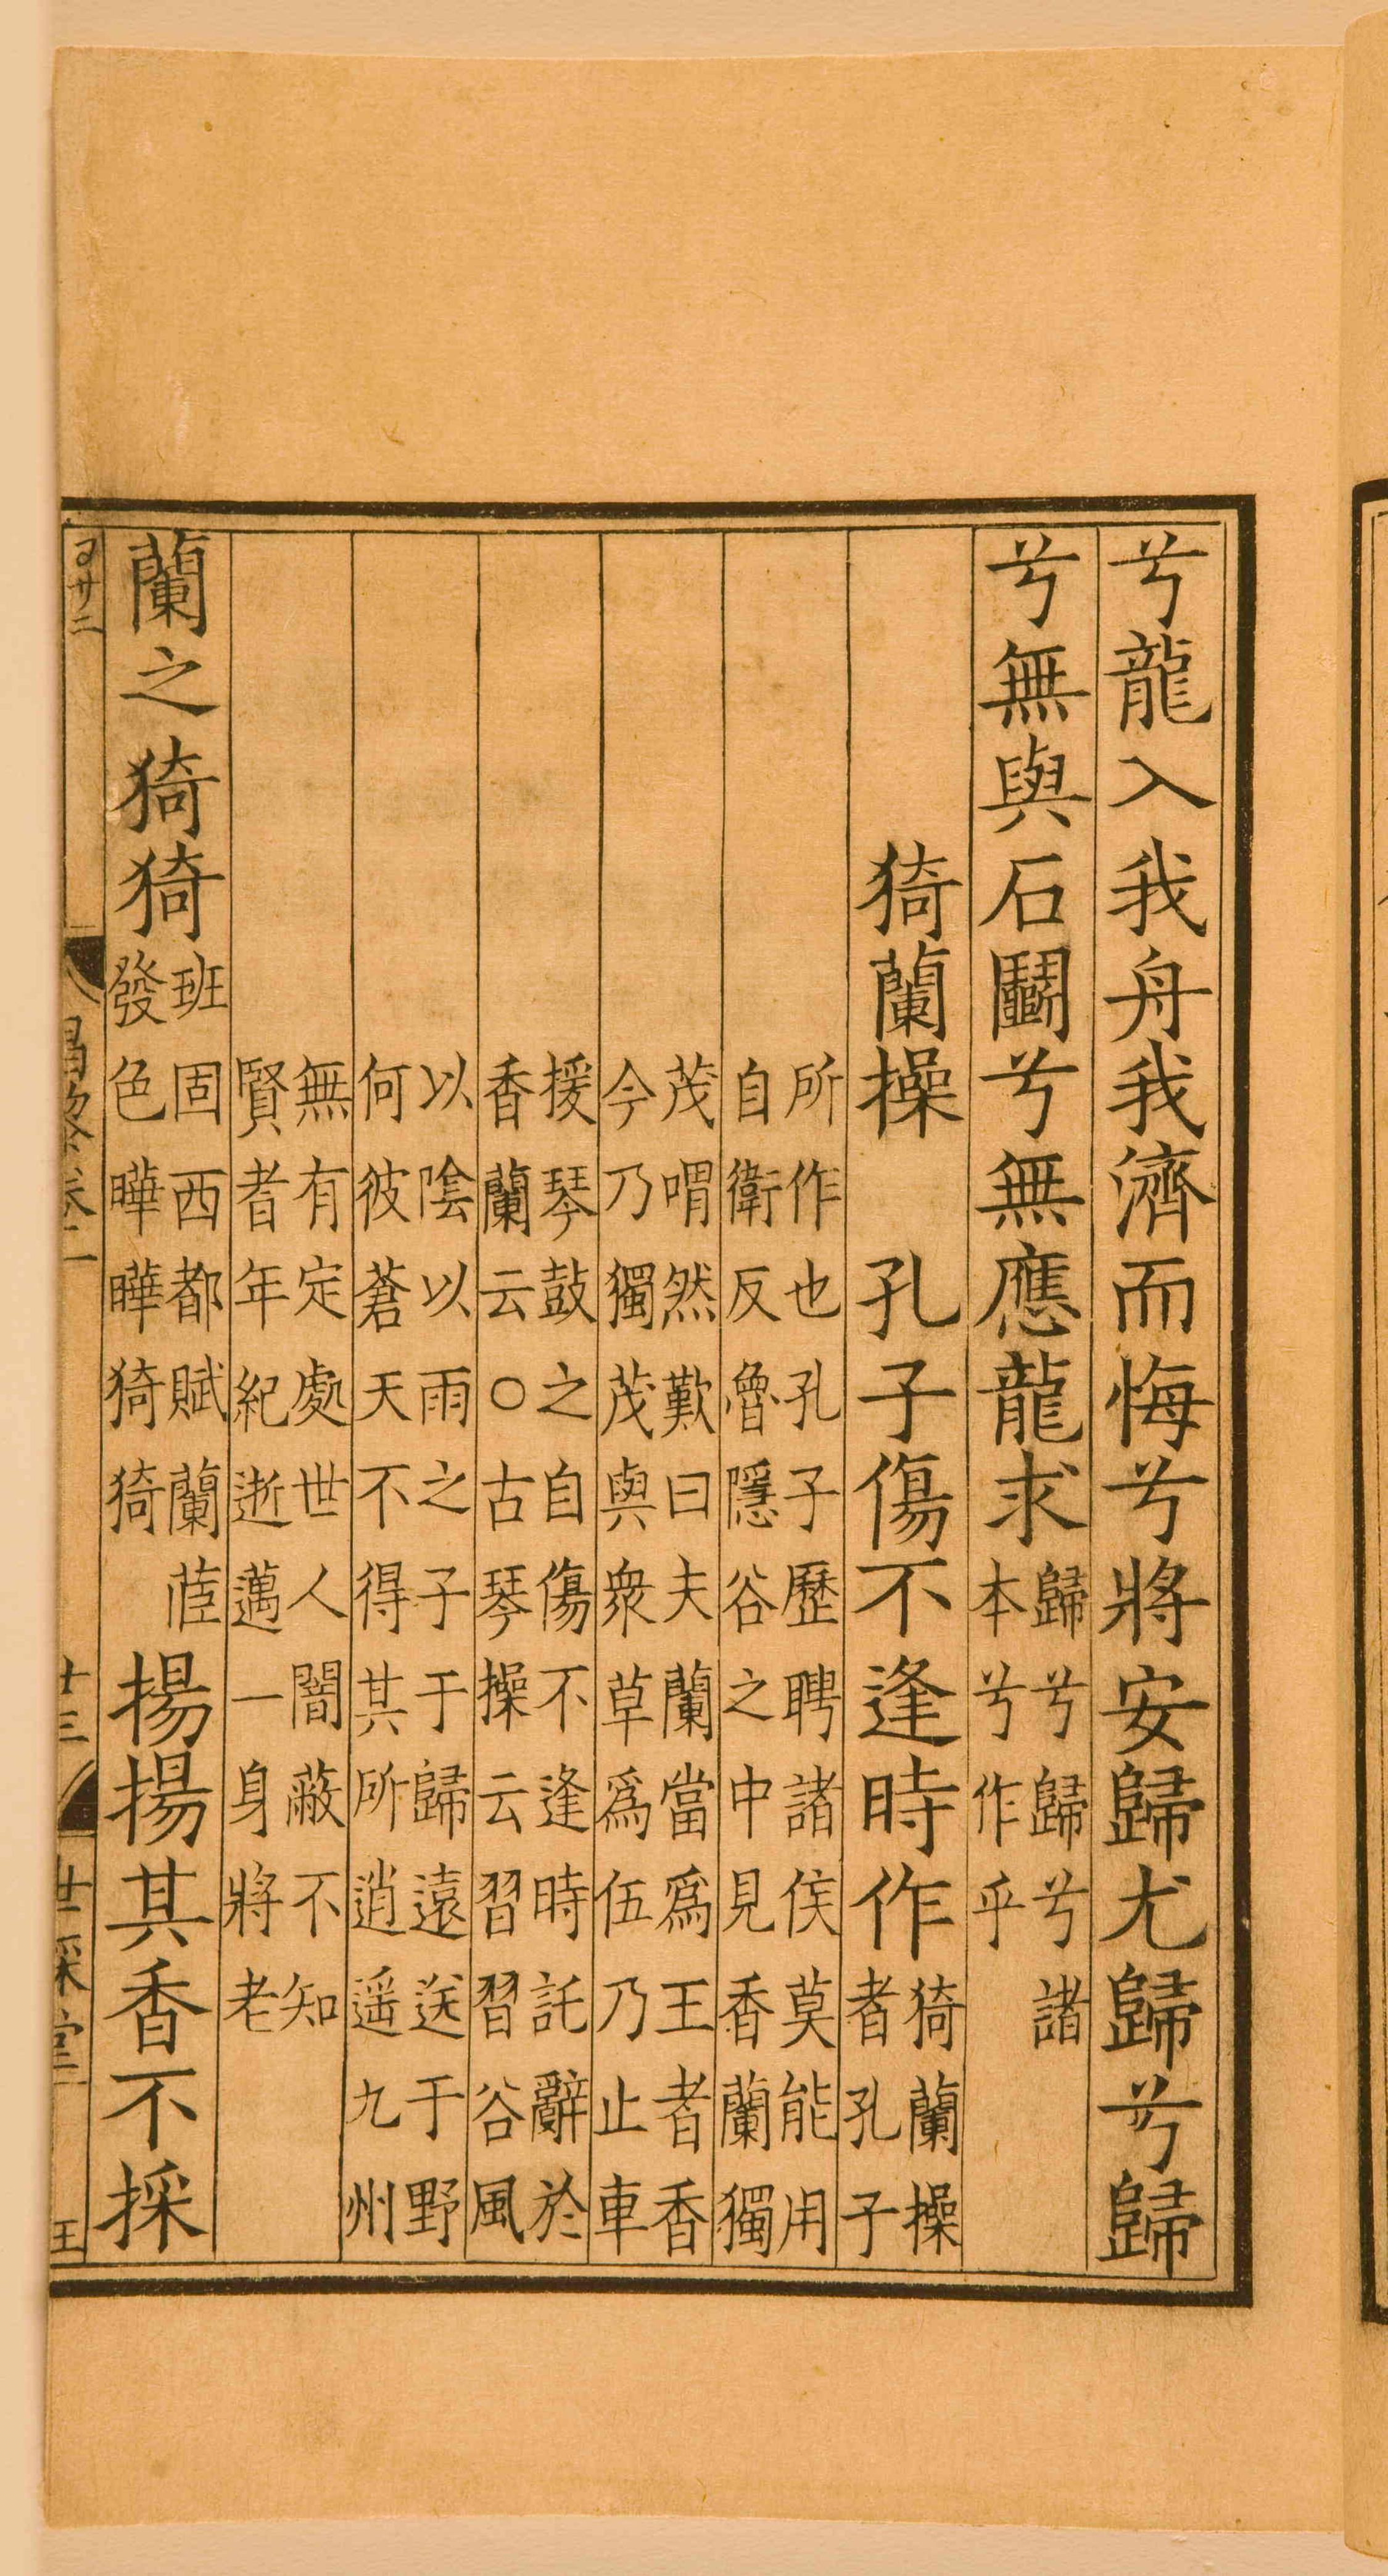 兮龍入我舟我濟而悔兮將安歸尤歸兮歸
兮無與石鬭兮無應龍求歸兮歸兮諸本兮作乎
猗蘭操 孔子傷不逢時作猗蘭操者孔子
所作也孔子歷聘諸侯莫能用
自衛反魯隱谷之中見香蘭獨
茂喟然歎曰夫蘭當爲王者香
今乃獨茂與衆草爲伍乃止車
援琴鼓之自傷不逢時託辭於
香蘭云○古琴操云習習谷風
以陰以雨之子于歸遠送于野
何彼蒼天不得其所逍遥九州
無有定處世人闇蔽不知
賢者年紀逝邁一身將老
蘭之猗猗班固西都賦蘭茝發色曄曄猗猗揚揚其香不採
廿二
昌黎卷二
十三
世綵堂
王